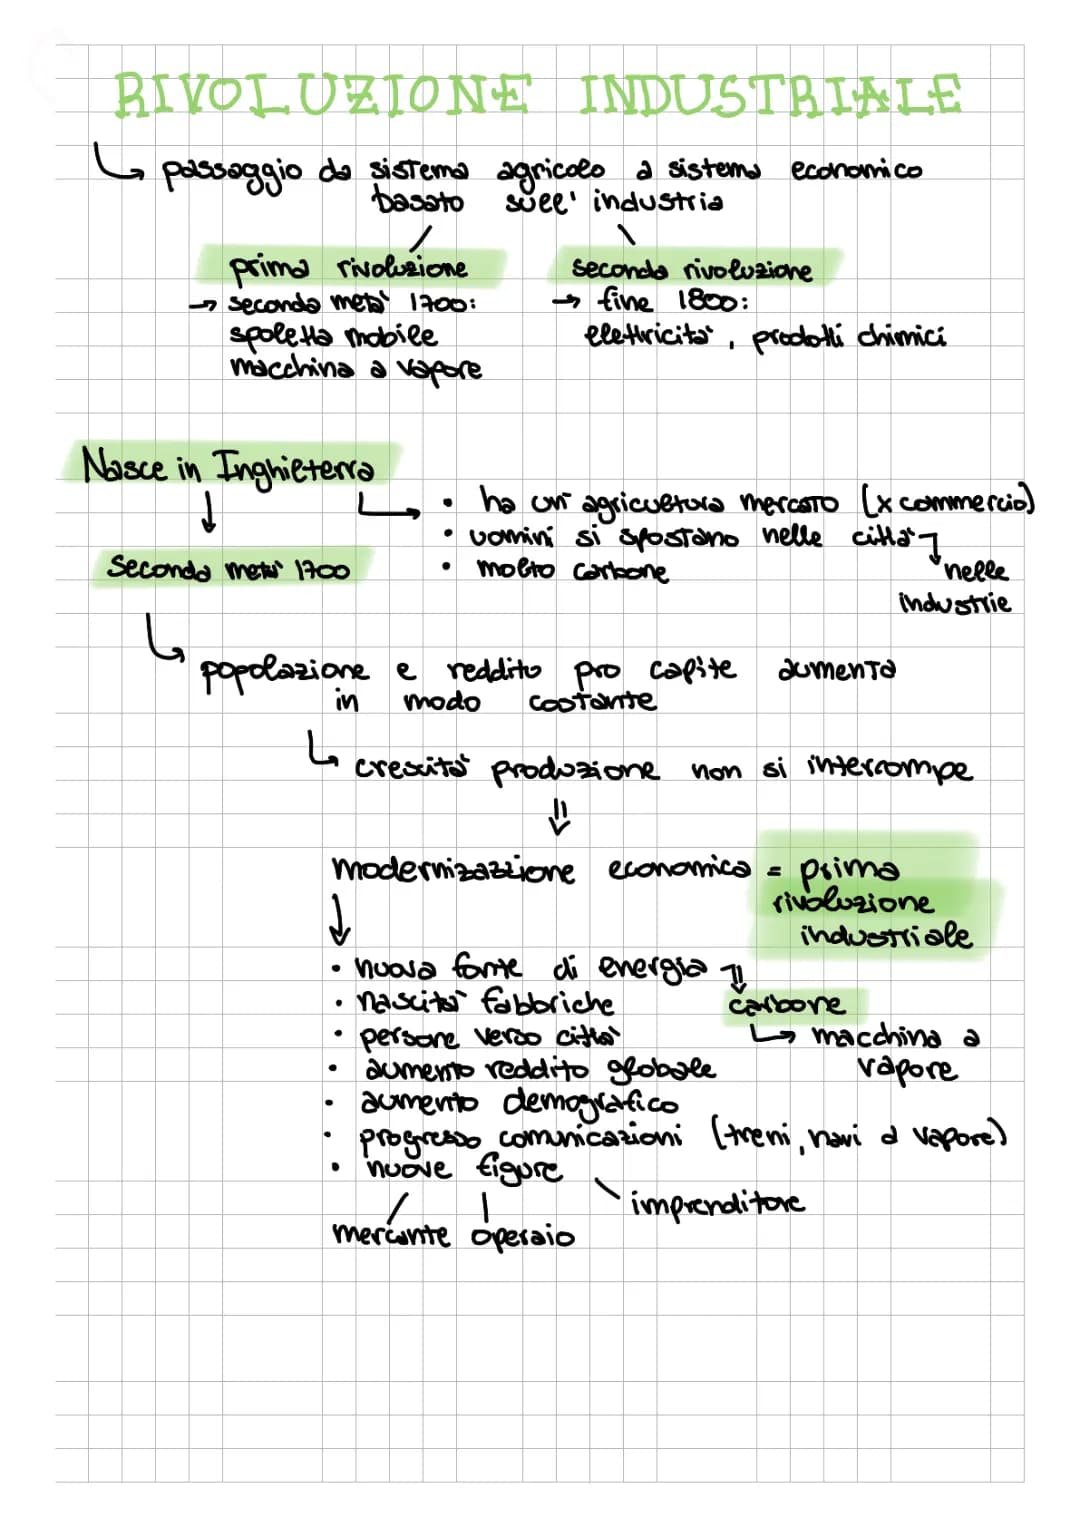 RIVOLUZIONE INDUSTRIALE
passaggio da sistema agricolo a sistema economico
basato sull' industria
prima rivoluzione
→ seconda metà 1700:
spoletta mobile
macchina a vapore
seconda rivoluzione
→ fine 1800:
elettricità, prodotti chimici
Nasce in Inghilterra
• ha un' agricoltura mercato (x commercio)
• uomini si spostano nelle città
nelle
industrie
• molto carbone
Seconda metà 1700
popolazione e reddito pro capite aumenta
in modo costante
crescita produzione non si interrompe
modernizzazione economica = prima
rivoluzione
industriale
• nuova fonte di energia
carbone
macchina a
vapore
• nascita fabbriche
• persone verso città
• aumento reddito globale
• aumento demografico
• progresso comunicazioni (treni, navi a vapore)
• nuove figure
imprenditore
mercante operaio